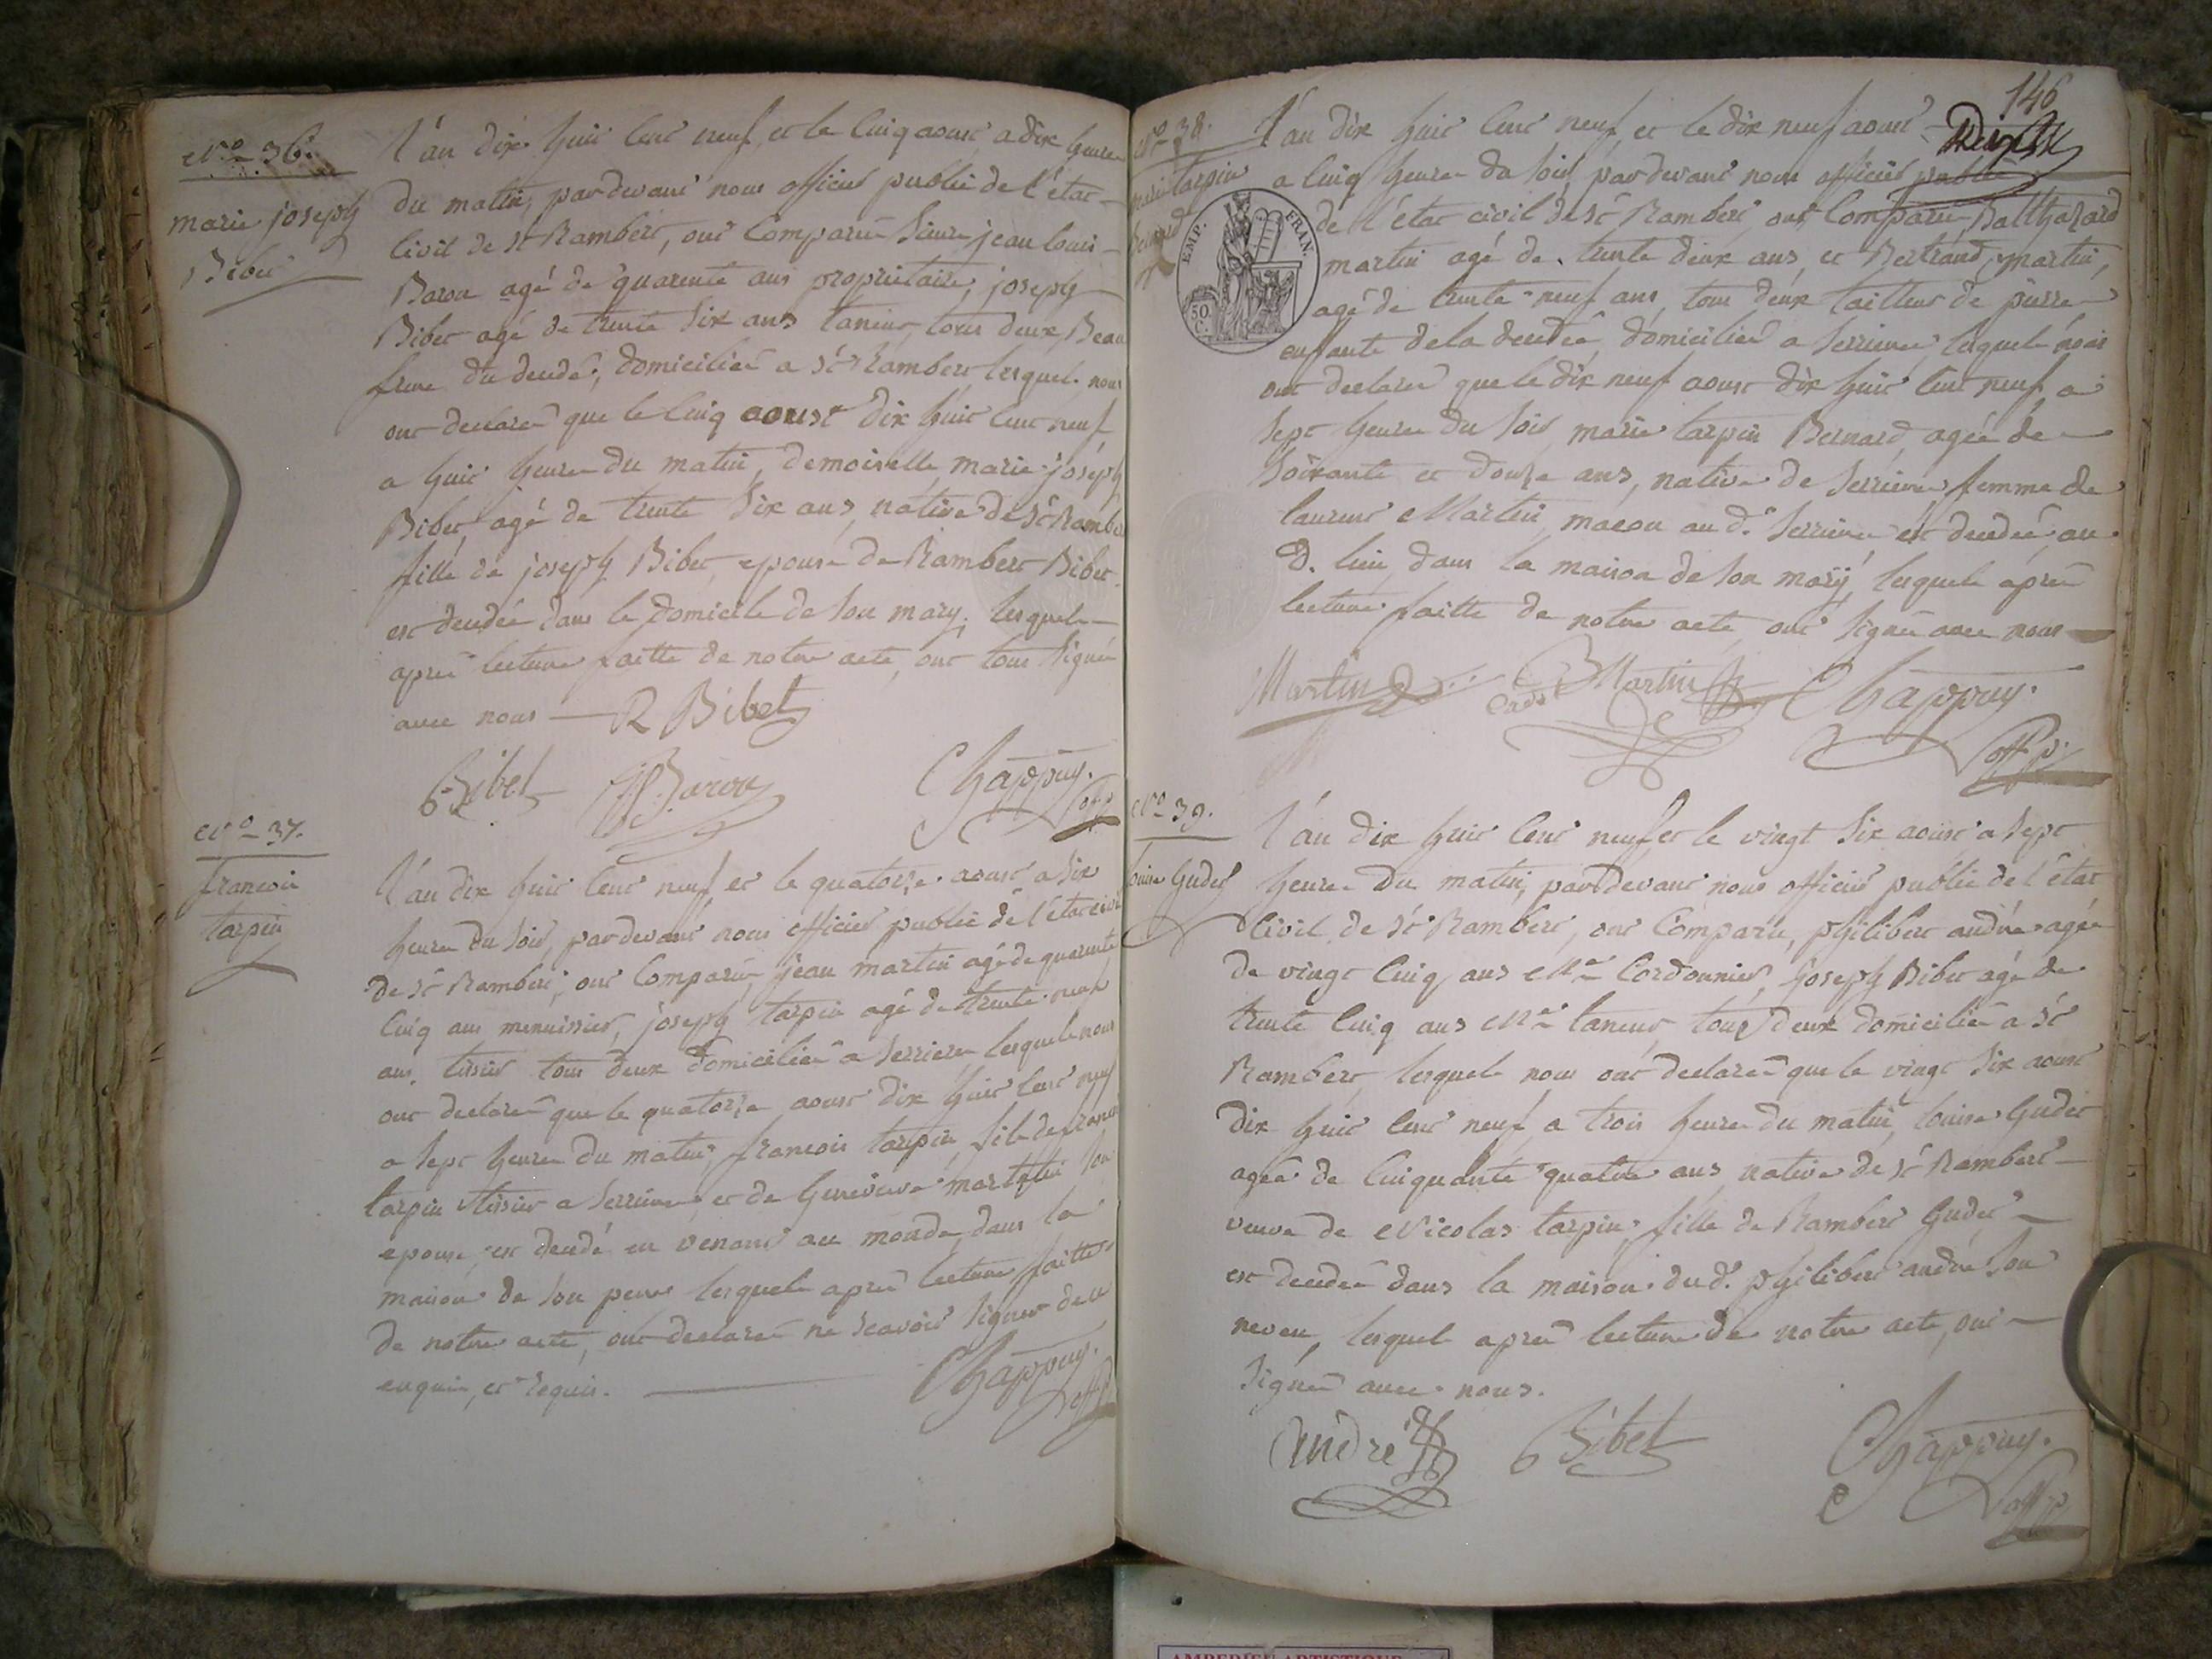 N.o 36.
marie joseph
Bibet
l'an dix huit cent neuf, et le cinq aoust a dix heures
du matin, pardevant nous officier public de l'état
civil de St Rambert, ont comparu sieur jean louis
Baron agé de quarente ans proprietaire, joseph
Bibet agé de trente six ans taneur, tous deux Beau
frere du decedé, domiciliés a St Rambert lesquels nous
ont declaré que le cinq aoust dix huit cent neuf
a huit heures du matin, demoiselle marie joseph
Bibet, agé de trente six ans, native de St Rambert
fille de joseph Bibet, epouse de Rambert Bibet
est decedée dans le domicile de son mary, lesquels
aprés lecture faitte de notre acte, ont tous signé
avec nous — R Bibet
Bibet Baron Chappuy.
off p
N.o 37.
francois
tarpin
l'an dix huit cent neuf, et le quatorze aoust a six
heures du soir, pardevant nous officier public de l'état civil
de St Rambert, ont comparu jean martin agé de quarente
cinq ans menuisier, joseph tarpin agé de trente neuf
ans, tissier tous deux domiciliés a serrieres lesquels nous
ont declaré que le quatorze aoust dix huit cent neuf
a sept heures du matin, francois tarpin, fils de francois
tarpin tissier a serrieres et de Genevieve martin son
epouse, est decedé en venant au monde, dans la
maison de son pere lesquels aprés lecture faitte
de notre acte, ont declaré ne scavoir signer de ce
enquis, et requis.
Chappuy.
off p
146
N.o 38.
marie tarpin
Bernard
l'an dix huit cent neuf, et le dix neuf aoust
a cinq heures du soir, pardevant nous officier public
de l'état civil de St Rambert ont comparu, Balthazard
martin agé de trente deux ans, et Bertrand martin,
agé de trente neuf ans, tous deux tailleur de pierre
EMP. FRAN.
50 C.
enfants de la decedée, domiciliés a serrieres, lesquels nous
ont declaré que le dix neuf aoust dix huit cent neuf, a
sept heures du soir marie tarpin Bernard, agée de
soixante et douze ans, native de serrieres femme de
laurent Martin, macon au d. serrieres est decedée, au
d. lieu, dans la maison de son mary, lesquels aprés
lecture faitte de notre acte, ont signé avec nous
Martin Martin Chappuy.
off p.
N.o 39.
louise Gudet
l'an dix huit cent neuf et le vingt six aoust a sept
heures du matin, pardevant nous officier public de l'état
civil de St Rambert, ont comparu, philibert andré agée
de vingt cinq ans Me cordonnier, joseph Bibet agé de
trente cinq ans Me taneur, tous deux domiciliés a St
Rambert lesquels nous ont declaré que le vingt six aoust
dix huit cent neuf a trois heures du matin, louise Gudet
agée de cinquante quatre ans native de St Rambert
veuve de Nicolas tarpin, fille de Rambert Gudet
est decedée dans la maison du d. philibert andré son
neveu, lesquels aprés lecture de notre acte, ont
signé avec nous.
André Bibet Chappuy.
off p
AMBERIEU ARTISTIQUE